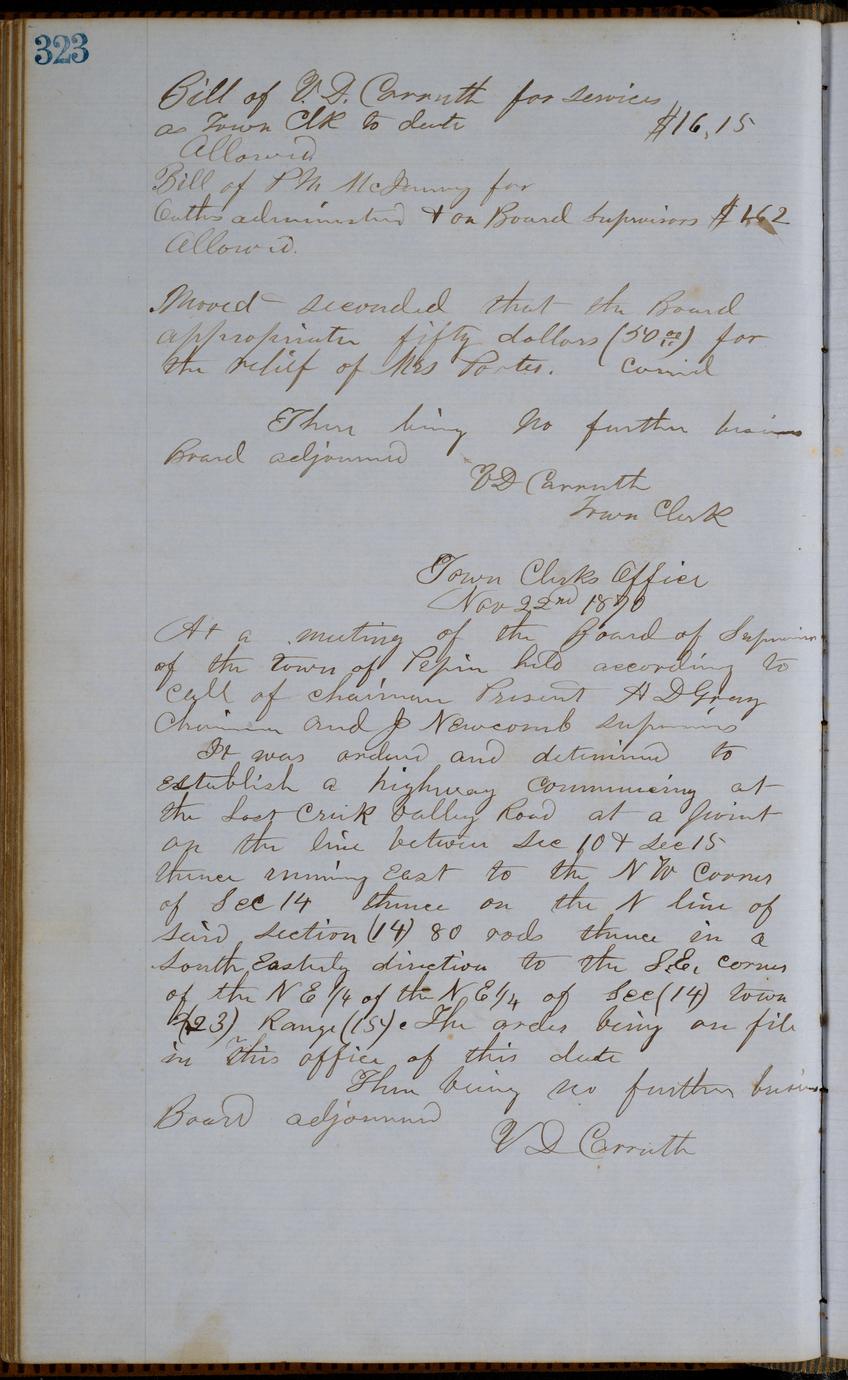 323
Bill of V. D. Carruth for services
as Town Clk to date $16,15
Allowed
Bill of P M McInnny for
Oaths administed & on Board Supervisors $1,62
Allowed.
Moved seconded that the Board
appropriate fifty dollars (50 00) for
the relief of Mrs Porter. Carried
There being no further busines
Board adjourned
V D Carruth
Town Clerk
Town Clerks Office
Nov 22nd 1870
At a meeting of the Board of Supervisors
of the town of Pepin held according to
Call of chairman Present A D Gray
Chairman and J Newcomb supervisors
It was ordered and determined to
establish a highway commencing at
the Lost Crick Valley Road at a point
on the line between Sec 10 & Sec 15
thence running East to the N W Corner
of Sec 14 thence on the N line of
said section (14) 80 rods thence in a
South Easterly direction to the S.E. corner
of the N E 1/4 of the N E 1/4 of Sec (14) town
(23) Range (15). The order being on file
in this office of this date
There being no further busines
Board adjourned
V D Carruth